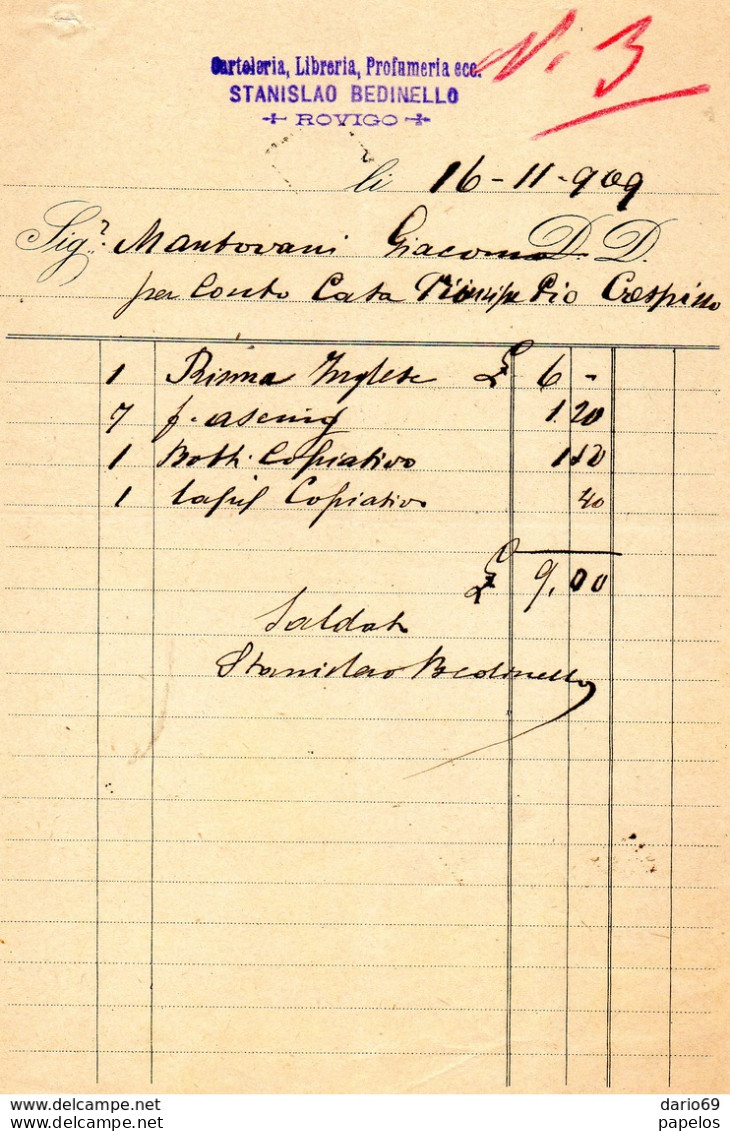 N. 3
Cartoleria, Libreria, Profumeria ecc.
STANISLAO BEDINELLO
ROVIGO
li 16-11-909
Sigr. Mantovani Giacomo D. D.
per Conto Casa Principe Pio Crespino
1 Risma Inglese £ 6 -
7 f. 1 20
1 Bott. Copiativo
1 Copiativo 40
£ 9,00
Saldato
Stanislao Bedinello
www.delcampe.net
dario69
papelos